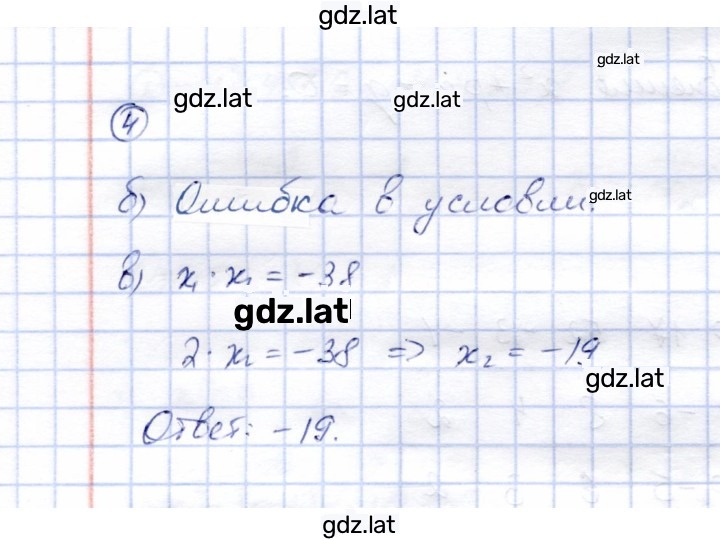 gdz.lat
gdz.lat
gdz.lat gdz.lat
④
б) Ошибка в условии. gdz.lat
в) x₁ · x₂ = -38
gdz.lat
2 · x₂ = -38 => x₂ = -19
gdz.lat
Ответ: -19.
gdz.lat